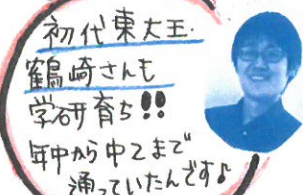 初代東大王・
鶴崎さんも
学研育ち!!
年中から中2まで
通っていたんです♪